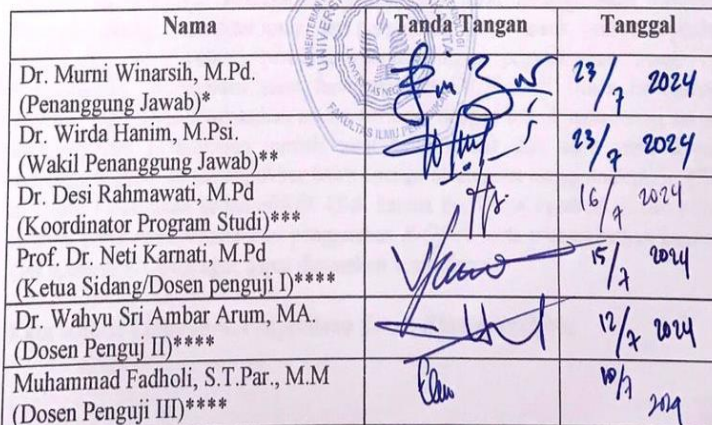 Nama Tanda Tangan Tanggal
Dr. Murni Winarsih, M.Pd.
(Penanggung Jawab)* 23/7 2024
Dr. Wirda Hanim, M.Psi.
(Wakil Penanggung Jawab)** 23/7 2024
Dr. Desi Rahmawati, M.Pd
(Koordinator Program Studi)*** 16/7 2024
Prof. Dr. Neti Karnati, M.Pd
(Ketua Sidang/Dosen penguji I)**** 15/7 2024
Dr. Wahyu Sri Ambar Arum, MA.
(Dosen Penguj II)**** 12/7 2024
Muhammad Fadholi, S.T.Par., M.M
(Dosen Penguji III)**** 10/7 2024